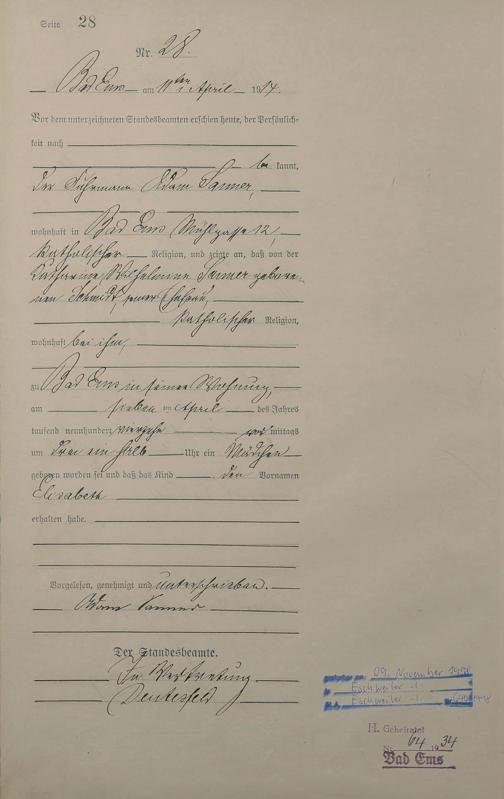 Seite 28
Nr. 28.
Bad Ems am 11ten April 1914.
Vor dem unterzeichneten Standesbeamten erschien heute, der Persönlich-
keit nach
be kannt,
der Fuhrmann Adam Sanner,
wohnhaft in Bad Ems Mühlgasse 12,
katholischer Religion, und zeigte an, daß von der
Katharina Wilhelmine Sanner gebore-
nen Schmidt, seiner Ehefrau,
katholischer Religion,
wohnhaft bei ihm,
zu Bad Ems in seiner Wohnung,
am sieben ten April des Jahres
tausend neunhundert vierzehn vor mittags
um drei ein halb Uhr ein Mädchen
geboren worden sei und daß das Kind den Vornamen
Elisabeth
erhalten habe.
Vorgelesen, genehmigt und unterschrieben.
Adam Sanner
Der Standesbeamte.
In Vertretung
09. November
Eschweiler
Eschweiler
H. Geheiratet
Nr. 64 1934
Bad Ems